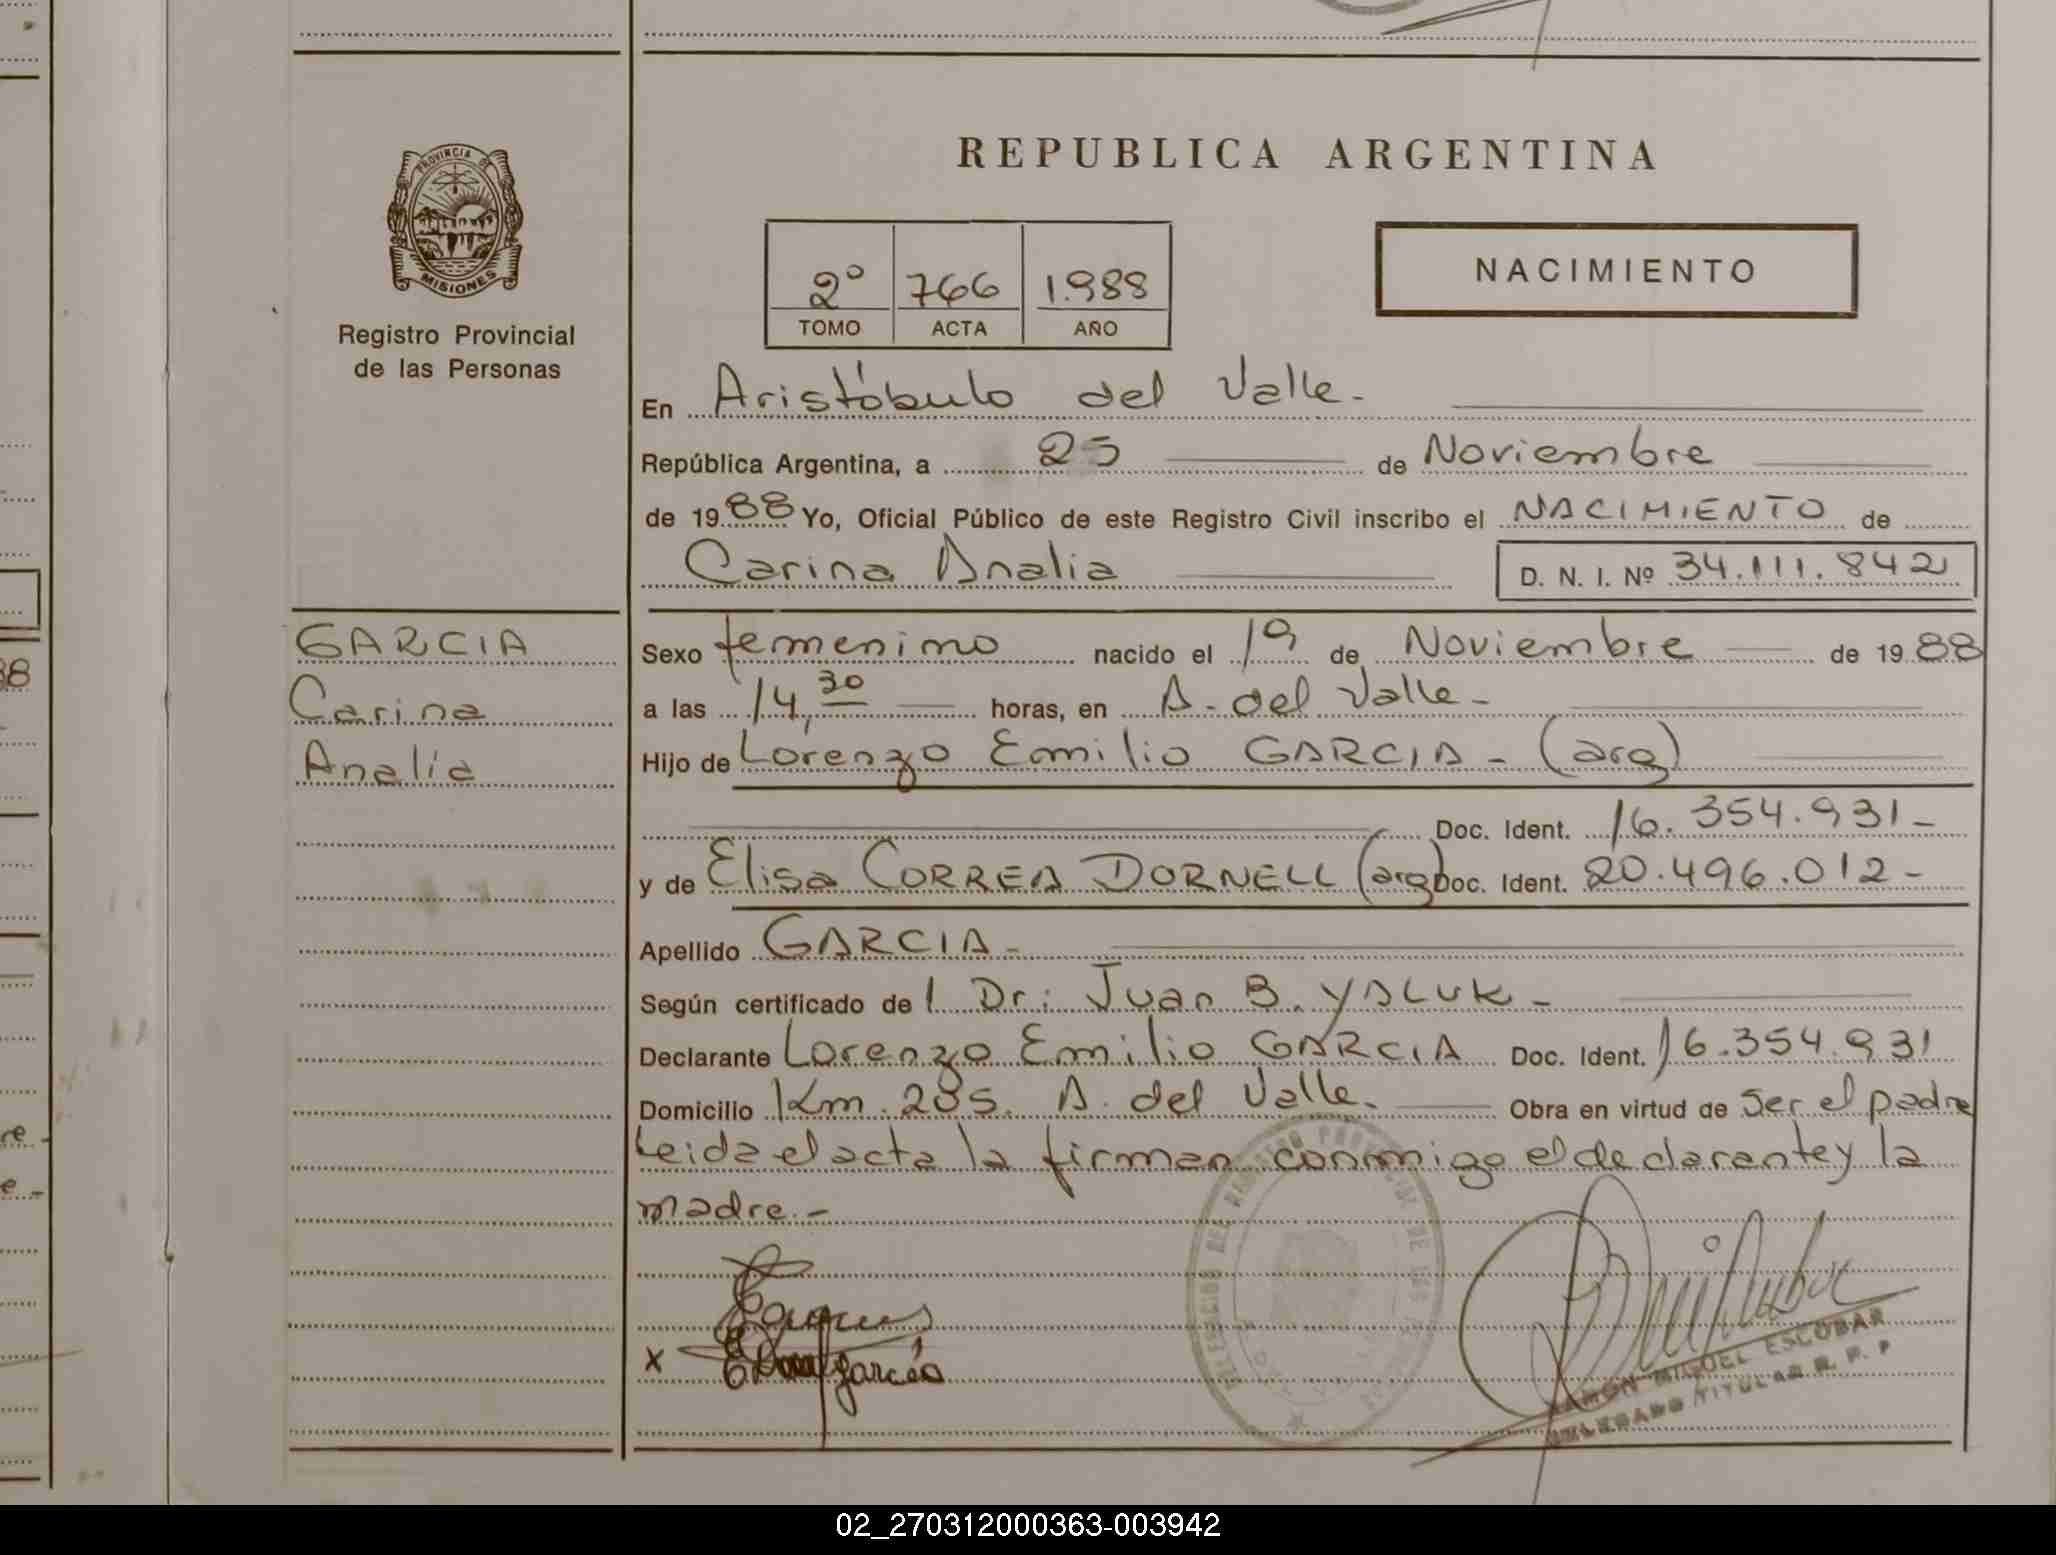 REPUBLICA ARGENTINA
PROVINCIA DE
MISIONES
Registro Provincial
de las Personas
2º 766 1.988
TOMO ACTA AÑO
NACIMIENTO
En Aristóbulo del Valle.-
República Argentina, a 25 de Noviembre
de 1988 Yo, Oficial Público de este Registro Civil inscribo el NACIMIENTO de
Carina Analia D. N. I. Nº 34.111.842
GARCIA
Carina
Analía
Sexo femenino nacido el 19 de Noviembre de 1988
a las 14,30 horas, en A. del Valle-
Hijo de Lorenzo Emilio GARCIA - (arg)
Doc. Ident. 16.354.931-
y de Elisa CORREA DORNELL (arg) Doc. Ident. 20.496.012-
Apellido GARCIA-
Según certificado de l Dr: Juan B. YALUK-
Declarante Lorenzo Emilio GARCIA Doc. Ident. 16.354.931
Domicilio Km. 285. A. del Valle. Obra en virtud de Ser el padre
Leida el acta la firman conmigo el declarante y la
madre.-
x
Garcia
RAMON MIGUEL ESCOBAR
DELEGADO TITULAR R. P. P
02_270312000363-003942